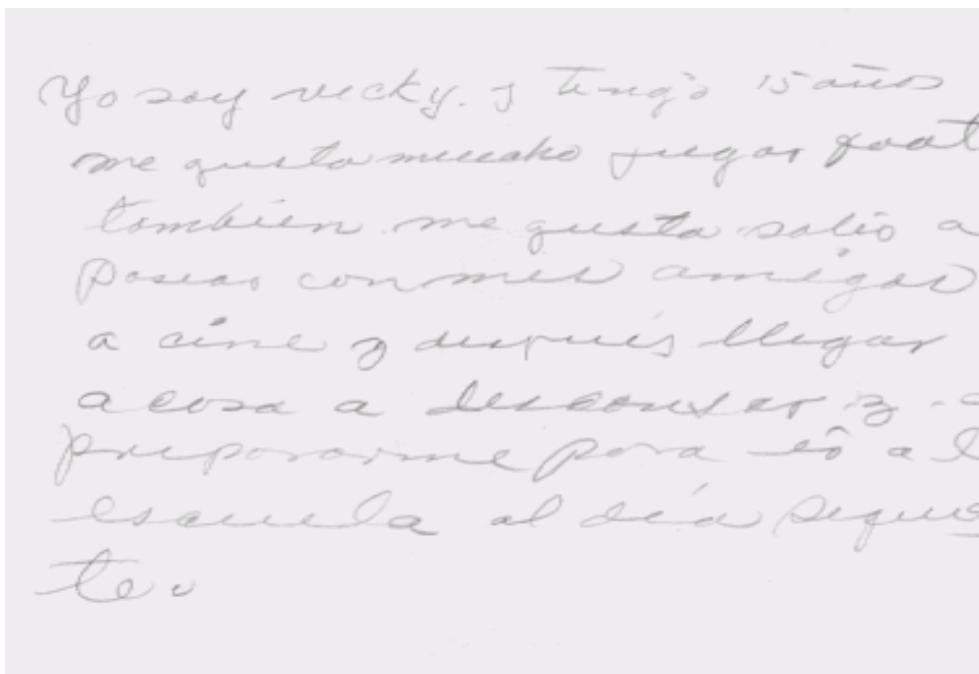 Yo soy vicky. y tengo 15 años
me gusta mucho jugar foot
tambien me gusta salir a
pasear con mis amigas
a cine y después llegar
a casa a descansar y a
prepararme para ir a l
escuela al día siguie
te.